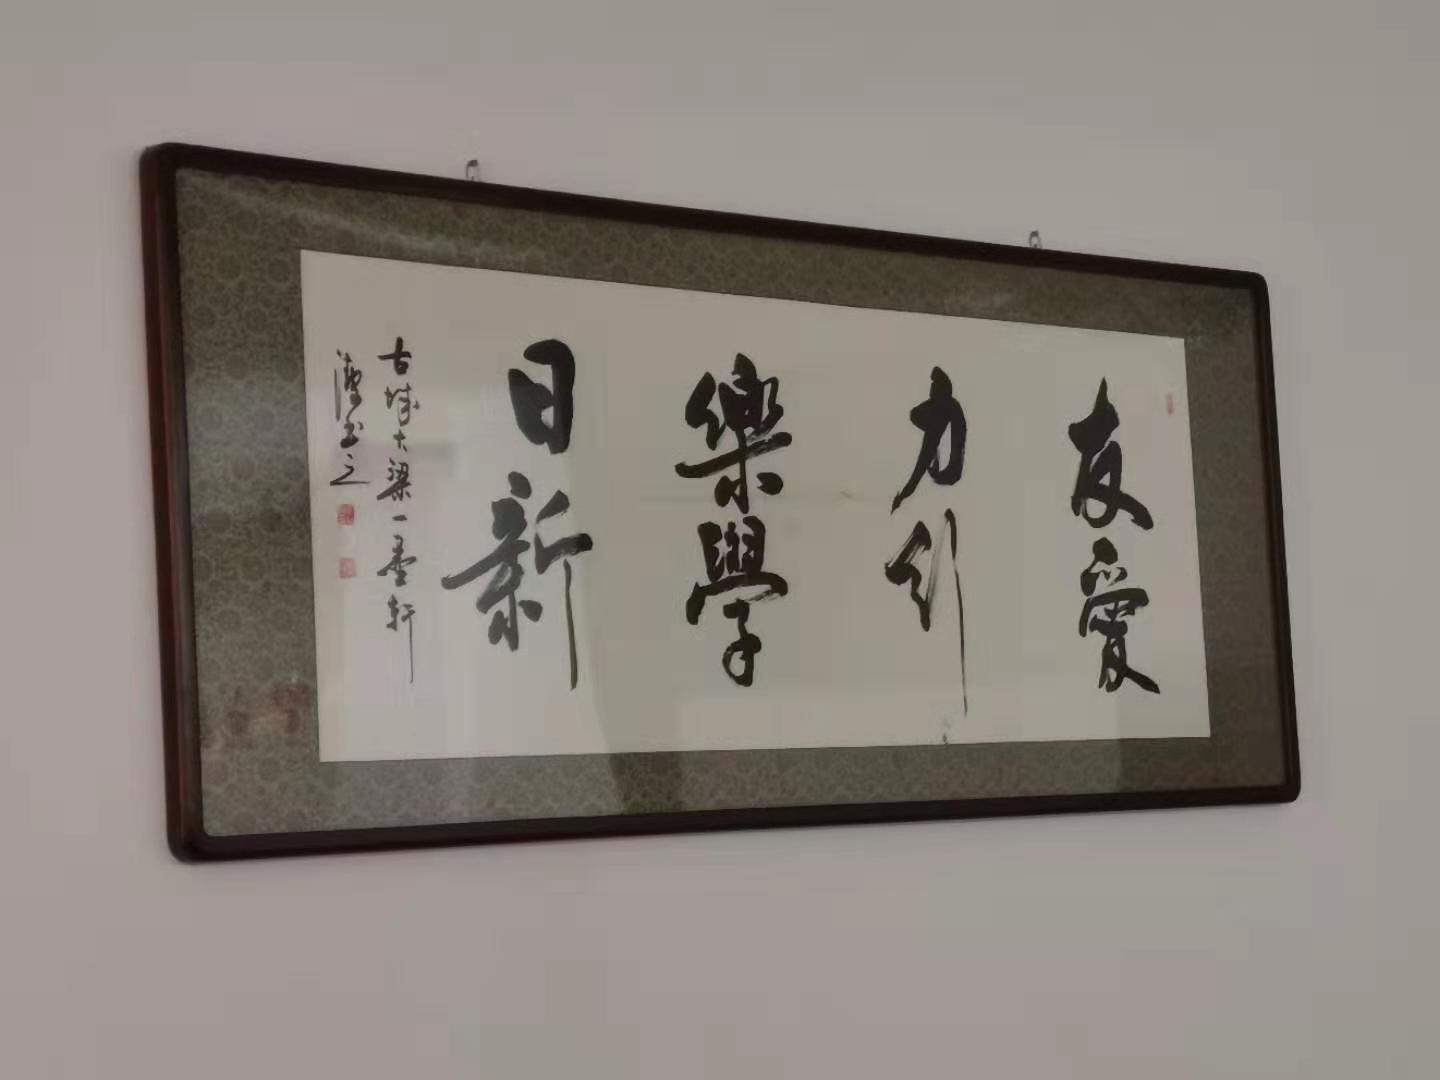 友愛
力行
樂學
日新
古城大梁一墨軒
濤書之